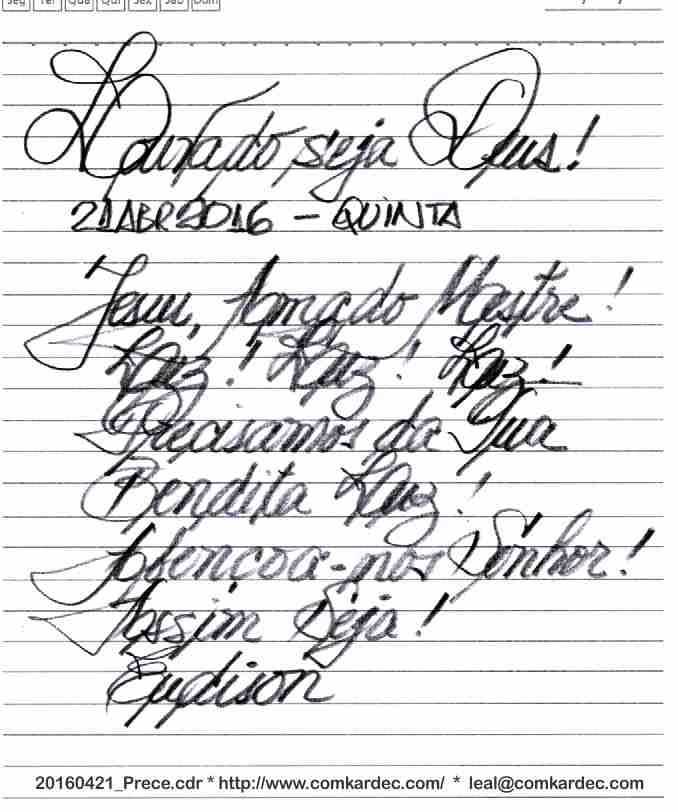 Seg Ter Qua Qui Sex Sáb Dom
Louvado seja Deus!
21ABR2016 – QUINTA
Jesus, Amado Mestre!
Luz! Luz! Luz!
Precisamos da Tua
Bendita Luz!
Abençoa-nos Senhor!
Assim Seja!
Eudison
20160421_Prece.cdr * http://www.comkardec.com/ * leal@comkardec.com